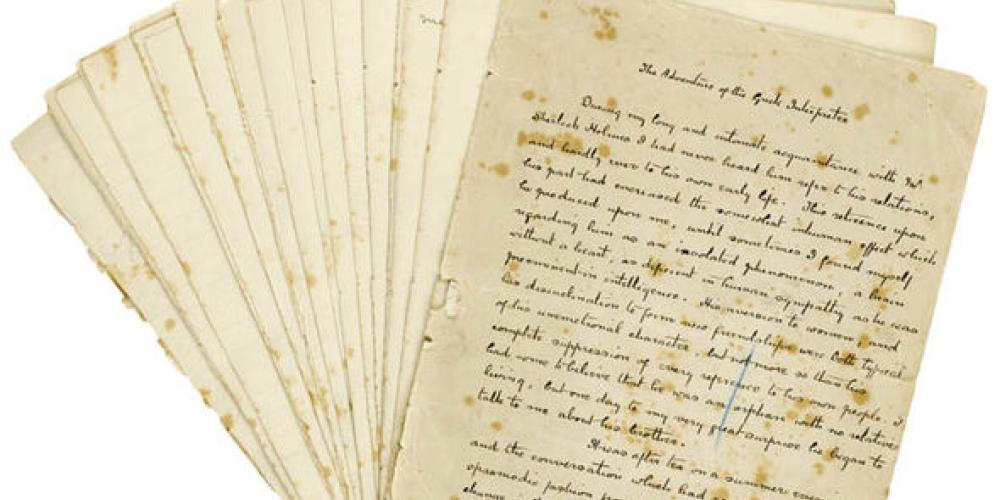 The Adventure of the Greek Interpreter
During my long and intimate acquaintance with Mr
Sherlock Holmes I had never heard him refer to his relations,
and hardly ever to his own early life. This reticence upon
his part had increased the somewhat inhuman effect which
he produced upon me, until sometimes I found myself
regarding him as an isolated phenomenon, a brain
without a heart, as deficient in human sympathy as he was
preeminent in intelligence. His aversion to women, and
his disinclination to form new friendships were both typical
of his unemotional character, but not more so than his
complete suppression of every reference to his own people. I
had come to believe that he was an orphan with no relatives
living, but one day to my very great surprise he began to
talk to me about his brother.
It was after tea on a summer evening
and the conversation which had
spasmodic fashion from